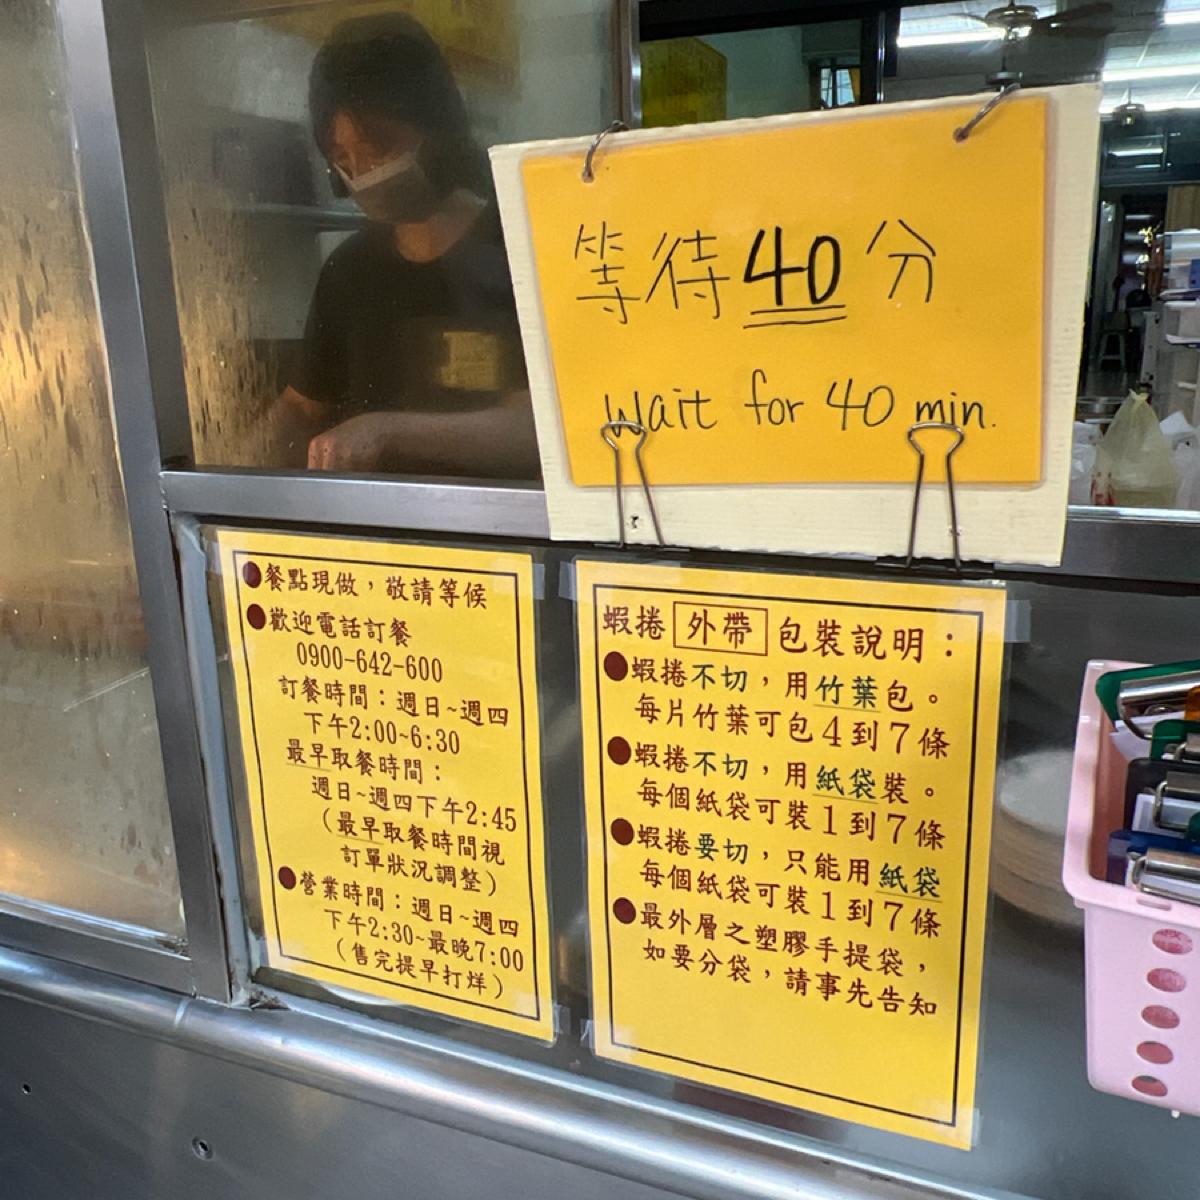 等待40分
Wait for 40 min.
●餐點現做，敬請等候
●歡迎電話訂餐
0900-642-600
訂餐時間：週日~週四
下午2:00~6:30
最早取餐時間：
週日~週四下午2:45
（最早取餐時間視
訂單狀況調整）
●營業時間：週日~週四
下午2:30~最晚7:00
（售完提早打烊）
蝦捲 外帶 包裝說明：
●蝦捲不切，用竹葉包。
每片竹葉可包4到7條
●蝦捲不切，用紙袋裝。
每個紙袋可裝1到7條
●蝦捲要切，只能用紙袋
每個紙袋可裝1到7條
●最外層之塑膠手提袋，
如要分袋，請事先告知